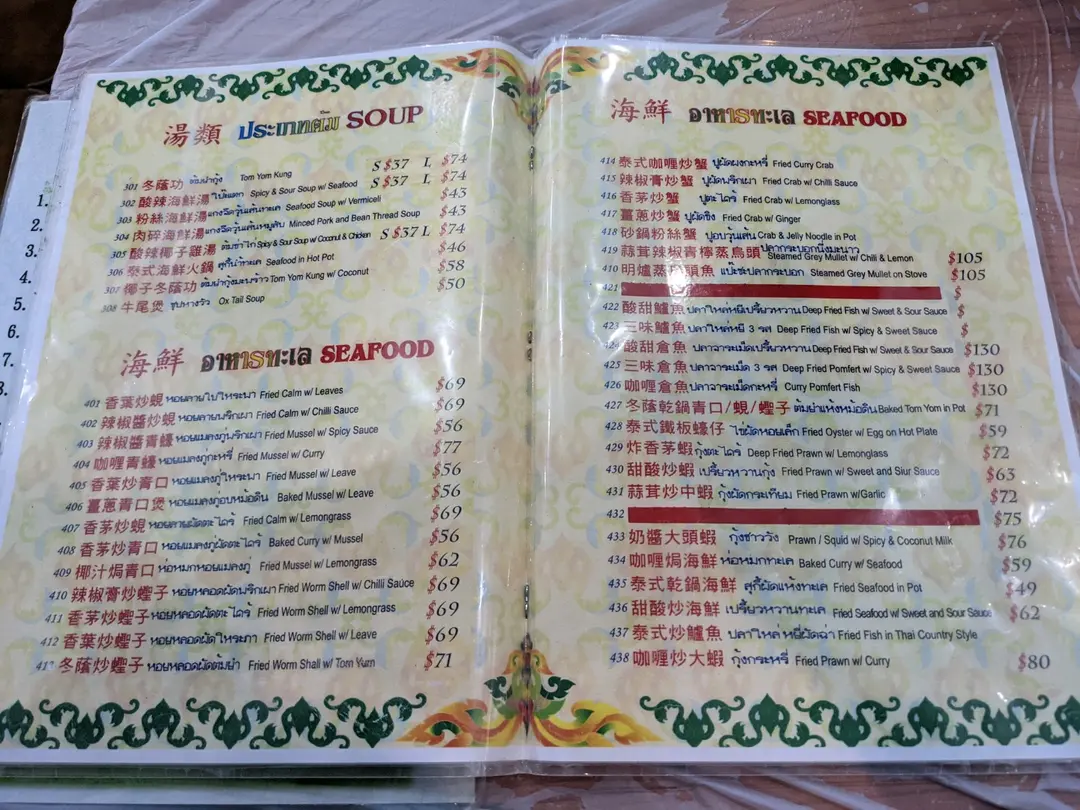 1.
2.
3.
4.
5.
6.
7.
湯類 ประเภทต้ม SOUP
301 冬蔭功 ต้มยำกุ้ง Tom Yom Kung S $37 L $74
302 酸辣海鮮湯 โป๊ะแตก Spicy & Sour Soup w/ Seafood S $37 L $74
303 粉絲海鮮湯 แกงจืดวุ้นเส้นทะเล Seafood Soup w/ Vermiceli $43
304 肉碎海鮮湯 แกงจืดวุ้นเส้นหมูสับ Minced Pork and Bean Thread Soup $43
305 酸辣椰子雞湯 ต้มข่าไก่ Spicy & Sour Soup w/ Coconut & Chicken S $37 L $74
306 泰式海鮮火鍋 สุกี้น้ำทะเล Seafood in Hot Pot $46
307 椰子冬蔭功 ต้มยำกุ้งมะพร้าว Tom Yom Kung w/ Coconut $58
308 牛尾煲 ซุปหางวัว Ox Tail Soup $50
海鮮 อาหารทะเล SEAFOOD
401 香葉炒蜆 หอยลายใบโหระพา Fried Calm w/ Leaves $69
402 辣椒醬炒蜆 หอยลายพริกเผา Fried Calm w/ Chilli Sauce $69
403 辣椒醬青蠔 หอยแมลงภู่พริกเผา Fried Mussel w/ Spicy Sauce $56
404 咖喱青蠔 หอยแมลงภู่กะหรี่ Fried Mussel w/ Curry $77
405 香葉炒青口 หอยแมลงภู่โหระพา Fried Mussel w/ Leave $56
406 薑蔥青口煲 หอยแมลงภู่อบหม้อดิน Baked Mussel w/ Leave $56
407 香茅炒蜆 หอยลายผัดตะไคร้ Fried Calm w/ Lemongrass $69
408 香茅炒青口 หอยแมลงภู่ผัดตะไคร้ Baked Curry w/ Mussel $56
409 椰汁焗青口 ห่อหมกหอยแมลงภู่ Fried Mussel w/ Lemongrass $62
410 辣椒膏炒蟶子 หอยหลอดผัดพริกเผา Fried Worm Shell w/ Chilli Sauce $69
411 香茅炒蟶子 หอยหลอดผัดตะไคร้ Fried Worm Shell w/ Lemongrass $69
412 香葉炒蟶子 หอยหลอดผัดโหระภา Fried Worm Shell w/ Leave $69
冬蔭炒蟶子 หอยหลอดผัดต้มยำ Fried Worm Shall w/ Tom Yum $71
海鮮 อาหารทะเล SEAFOOD
414 泰式咖喱炒蟹 ปูผัดผงกะหรี่ Fried Curry Crab
415 辣椒膏炒蟹 ปูผัดพริกเผา Fried Crab w/ Chilli Sauce
416 香茅炒蟹 ปูตะไคร้ Fried Crab w/ Lemonglass
417 薑蔥炒蟹 ปูผัดขิง Fried Crab w/ Ginger
418 砂鍋粉絲蟹 ปูอบวุ้นเส้น Crab & Jelly Noodle in Pot
419 蒜茸辣椒青檸蒸烏頭 ปลากระบอกนึ่งมะนาว Steamed Grey Mullet w/ Chili & Lemon $105
410 明爐蒸烏頭魚 แป๊ะซะปลากระบอก Steamed Grey Mullet on Stove $105
421 $
422 酸甜鱸魚 ปลาใหลหนีเปรี้ยวหวาน Deep Fried Fish w/ Sweet & Sour Sauce $
423 三味鱸魚 ปลาใหลหนี 3 รส Deep Fried Fish w/ Spicy & Sweet Sauce $
424 酸甜倉魚 ปลาจาระเม็ดเปรี้ยวหวาน Deep Fried Fish w/ Sweet & Sour Sauce $130
425 三味倉魚 ปลาจาระเม็ด 3 รส Deep Fried Pomfert w/ Spicy & Sweet Sauce $130
426 咖喱倉魚 ปลาจาระเม็ดกะหรี่ Curry Pomfert Fish $130
427 冬蔭乾鍋青口/蜆/蟶子 ต้มยำแห้งหม้อดิน Baked Tom Yom in Pot $71
428 泰式鐵板蠔仔 ไข่ผัดหอยเล็ก Fried Oyster w/ Egg on Hot Plate $59
429 炸香茅蝦 กุ้งตะไคร้ Deep Fried Prawn w/ Lemonglass $72
430 甜酸炒蝦 เปรี้ยวหวานกุ้ง Fried Prawn w/ Sweet and Siur Sauce $63
431 蒜茸炒中蝦 กุ้งผัดกระเทียม Fried Prawn w/Garlic $72
432 $75
433 奶醬大頭蝦 กุ้งชาววัง Prawn / Squid w/ Spicy & Coconut Milk $76
434 咖喱焗海鮮 ห่อหมกทะเล Baked Curry w/ Seafood $59
435 泰式乾鍋海鮮 สุกี้ผัดแห้งทะเล Fried Seafood in Pot $49
436 甜酸炒海鮮 เปรี้ยวหวานทะเล Fried Seafood w/ Sweet and Sour Sauce $62
437 泰式炒鱸魚 ปลาใหลหนีผัดฉ่า Fried Fish in Thai Country Style
438 咖喱炒大蝦 กุ้งกระหรี่ Fried Prawn w/ Curry $80